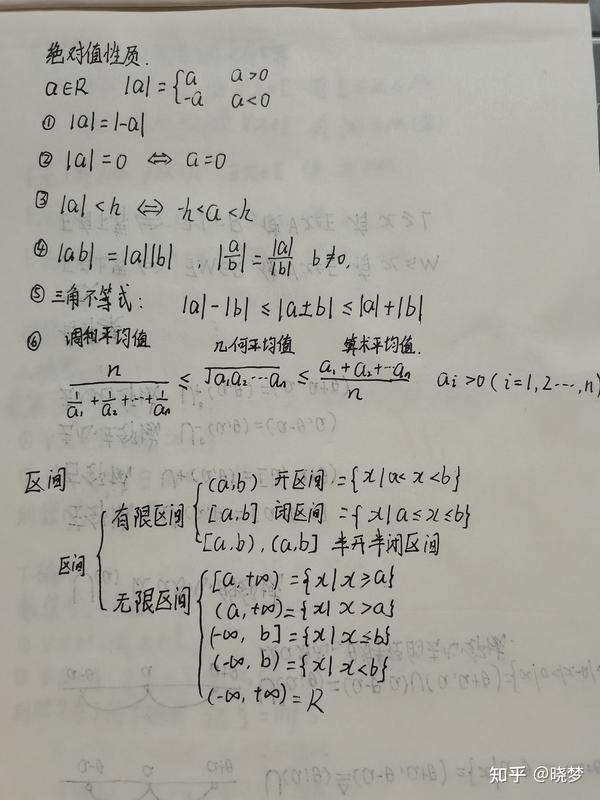 绝对值性质.
a∈R |a|={a a>0
-a a<0
① |a|=|-a|
② |a|=0 ⇔ a=0
③ |a|<h ⇔ -h<a<h
④ |ab|=|a||b| , |a/b|=|a|/|b| b≠0,
⑤ 三角不等式: |a|-|b|≤|a±b|≤|a|+|b|
⑥ 调和平均值 几何平均值 算术平均值.
n/(1/a₁+1/a₂+···+1/aₙ) ≤ √(a₁a₂···aₙ) ≤ (a₁+a₂+···aₙ)/n aᵢ>0(i=1,2···,n)
区间
(a,b) 开区间={x|a<x<b}
有限区间 [a,b] 闭区间={x|a≤x≤b}
[a,b),(a,b] 半开半闭区间
区间
[a,+∞)={x|x≥a}
无限区间 (a,+∞)={x|x>a}
(-∞,b]={x|x≤b}
(-∞,b)={x|x<b}
(-∞,+∞)=R
知乎 @晓梦